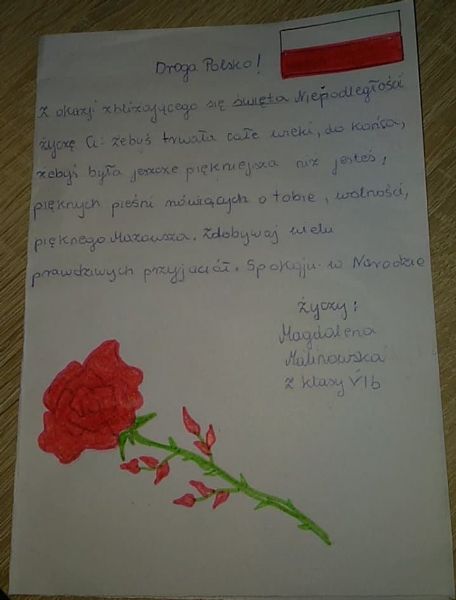 Droga Polsko!
Z okazji zbliżającego się święta Niepodległości
życzę Ci: żebyś trwała całe wieki, do końca,
żebyś była jeszcze piękniejsza niż jesteś,
pięknych pieśni mówiących o tobie, wolności,
pięknego Mazowsza. Zdobywaj wielu
prawdziwych przyjaciół. Spokoju w Narodzie
życzy:
Magdalena
Malinowska
z klasy VIb